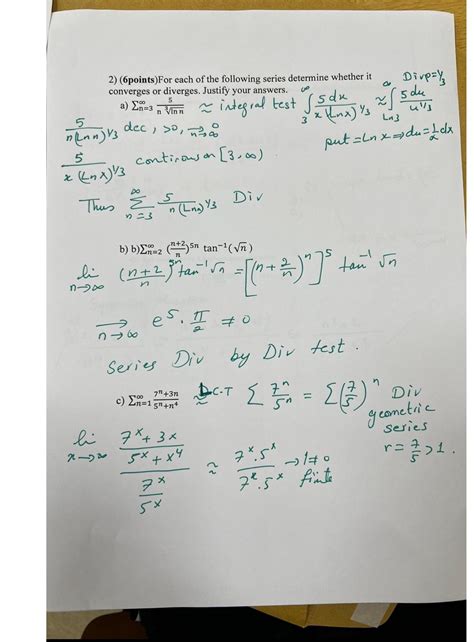 2) (6points)For each of the following series determine whether it
converges or diverges. Justify your answers.
a) ∑_{n=3}^{∞} 5/(n ∛ln n) ≈ integral test ∫_3^∞ 5dx/(x (Ln x)^{1/3}) ≈ ∫_{Ln3}^∞ 5du/u^{1/3} Div p=1/3
5/(n(Ln n)^{1/3}) dec, >0, →_{n→∞} 0
put = Ln x ⇒ du = 1/x dx
5/(x (Ln x)^{1/3}) continous on [3, ∞)
Thus ∑_{n=3}^{∞} 5/(n(Ln n)^{1/3}) Div
b) b)∑_{n=2}^{∞} ((n+2)/n)^{5n} tan^{-1}(√n)
li_{n→∞} ((n+2)/n)^{5n} tan^{-1}√n = [(n + 2/n)^n]^5 tan^{-1} √n
→_{n→∞} e^5 · π/2 ≠ 0
series Div by Div test.
c) ∑_{n=1}^{∞} (7^n+3n)/(5^n+n^4) ≈ L.C.T ∑ 7^n/5^n = ∑ (7/5)^n Div
geometric
series
r = 7/5 > 1.
li_{x→∞} ((7^x + 3x)/(5^x + x^4))/(7^x/5^x) ≈ (7^x · 5^x)/(7^x · 5^x) → 1 ≠ 0
finite